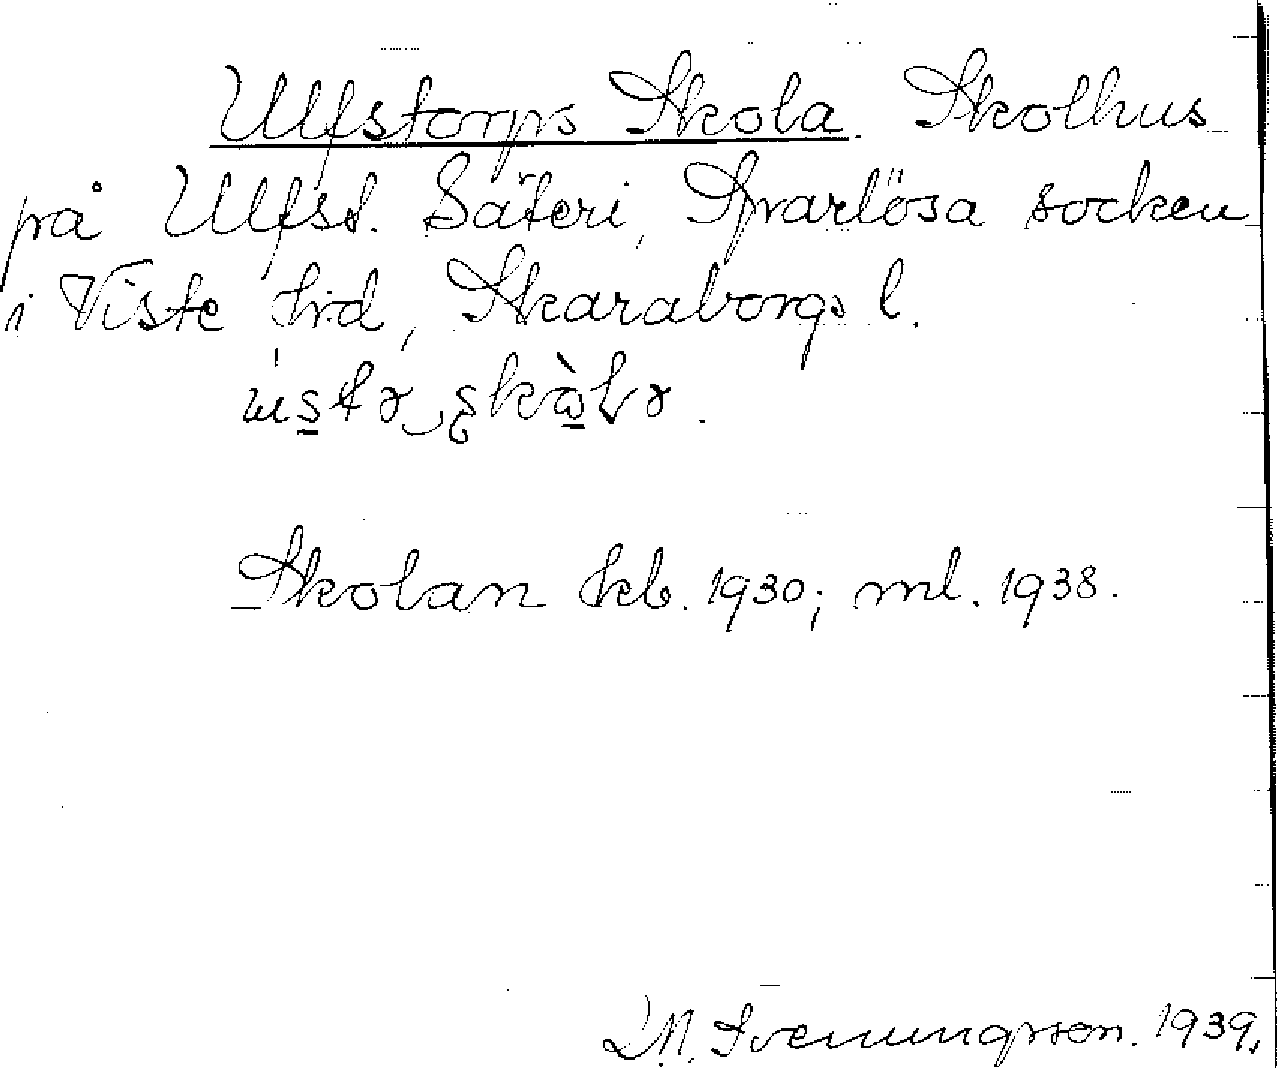 Ulfstorps Skola. Skolhus
på Ulfst. Säteri, Sparlösa socken
i Viste hd, Skaraborgs l.
Skolan kb. 1930; ml. 1938.
D.N. Svenungsson. 1939.